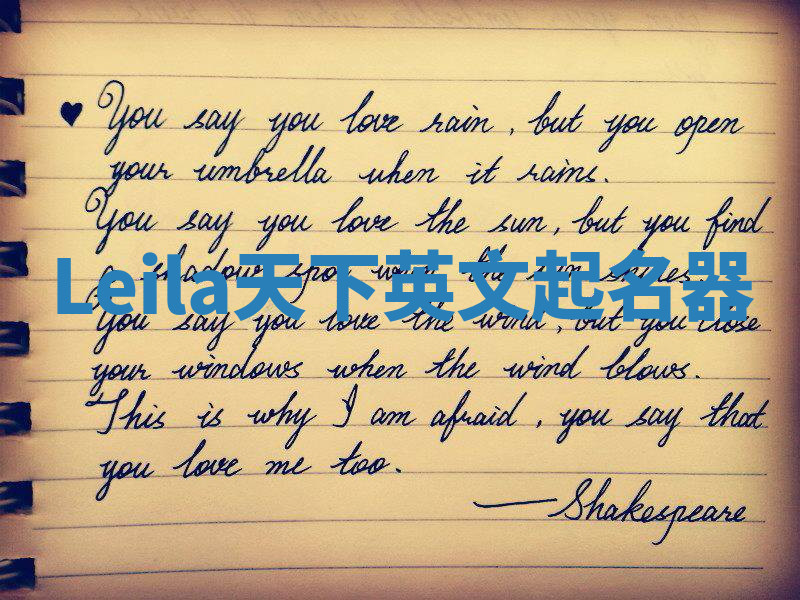 ♥ You say you love rain, but you open
your umbrella when it rains.
You say you love the sun, but you find
a shadow spot when the sun shines.
Leila天下英文起名器
You say you love the wind, but you close
your windows when the wind blows.
This is why I am afraid, you say that
you love me too.
— Shakespeare